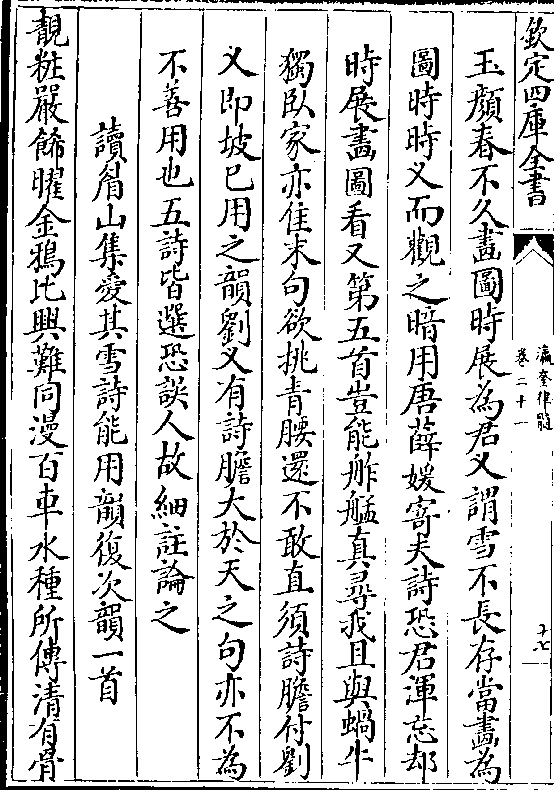 欽定四庫全書
瀛奎律髓
卷二十一
十七
玉顔春不久畫圖時展為君义謂雪不長存當畫為
圖時時义而觀之暗用唐薛媛寄夫詩恐君渾忘却
時展畫圖看又第五首豈能舴艋真尋我且與蝸牛
獨臥家亦佳末句欲挑青腰還不敢直須詩膽付劉
义即坡已用之韻劉义有詩膽大於天之句亦不為
不善用也五詩皆選恐誤人故細註論之
讀眉山集愛其雪詩能用韻復次韻一首
靚粧嚴飾曜金鴉比興難同漫百車水種所傳清有骨